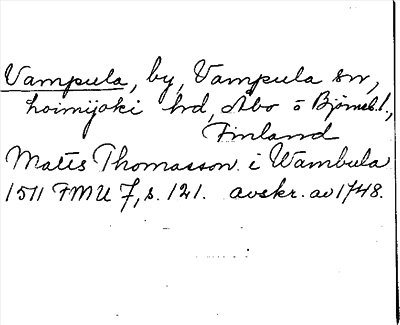 Vampula, by, Vampula sn,
Loimijoki hrd, Åbo o Björneb. l.,
Finland
Matis Thomasson i Wambula
1511 FMU 7, s. 121. avskr. av 1748.